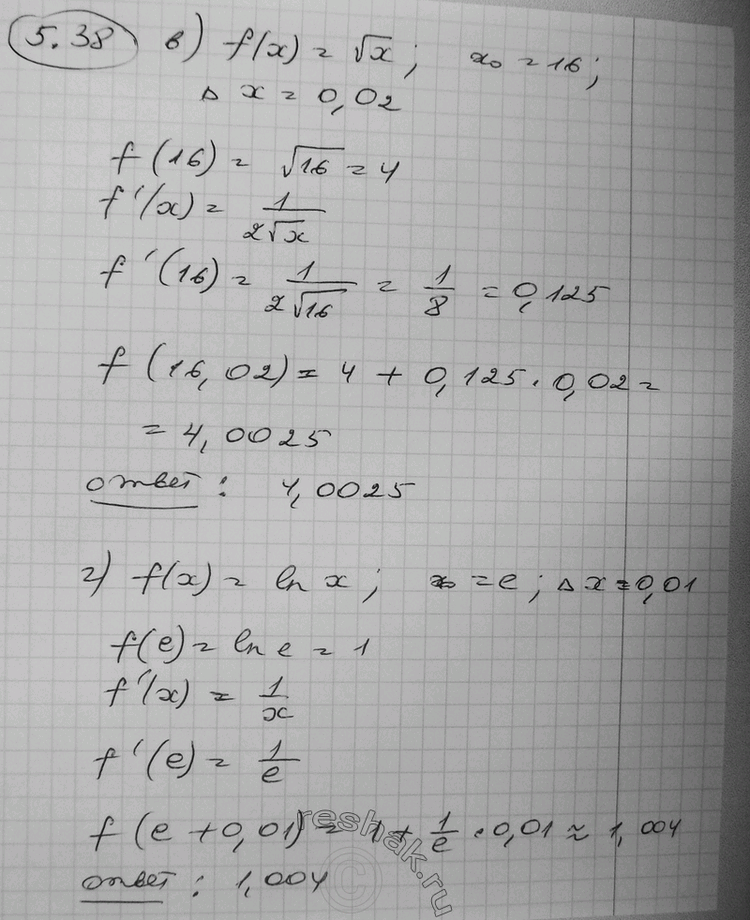 5.38 в) f(x) = √x ; x₀ = 16 ;
Δ x = 0,02
f(16) = √16 = 4
f'(x) = 1/(2√x)
f'(16) = 1/(2√16) = 1/8 = 0,125
f(16,02) = 4 + 0,125 · 0,02 =
= 4,0025
ответ : 4,0025
г) f(x) = ln x ; x₀ = e ; Δ x = 0,01
f(e) = ln e = 1
f'(x) = 1/x
f'(e) = 1/e
f(e + 0,01) = 1 + 1/e · 0,01 ≈ 1,004
ответ : 1,004
© reshak.ru